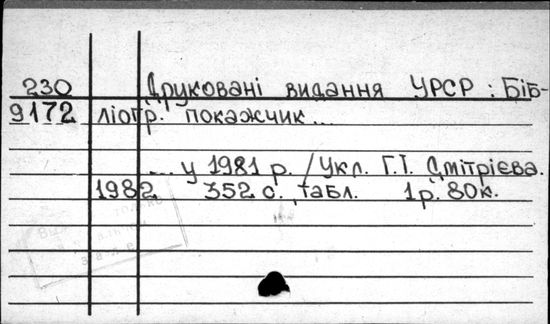 230 Друковані видання УРСР : Біб-
9172 ліогр. покажчик...
... у 1981 р. / Укл. Г.І. Дмітрієва.
1982 352 с. табл. 1 р. 80 к.